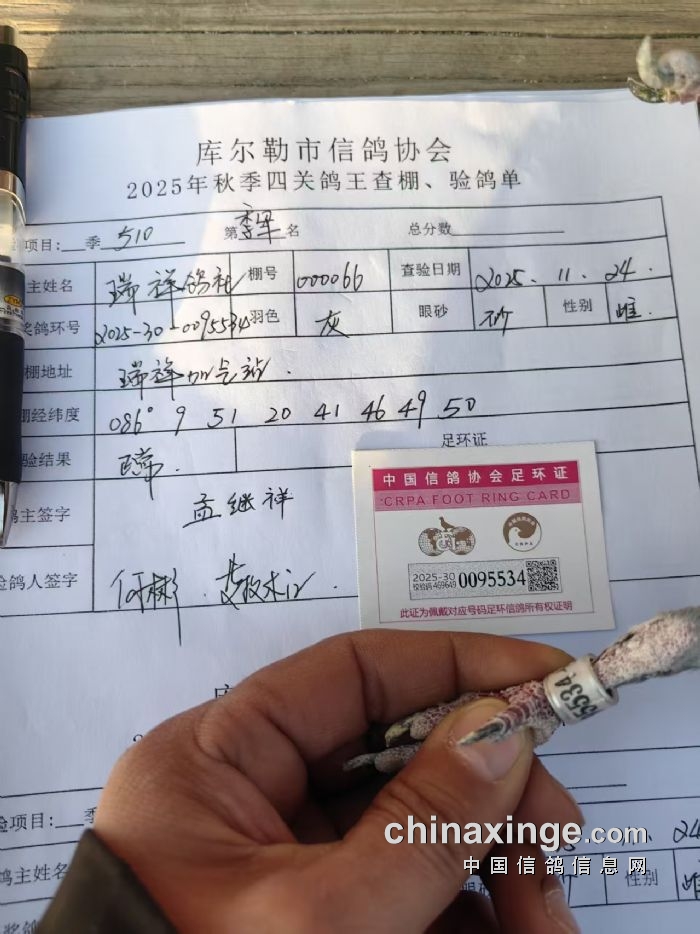 库尔勒市信鸽协会
2025年秋季四关鸽王查棚、验鸽单
项目: 季 510 第季军名 总分数
主姓名 瑞祥鸽社 棚号 000066 查验日期 2025.11.24.
奖鸽环号 2025-30-0095534 羽色 灰 眼砂 砂 性别 雌.
棚地址 瑞祥加气站.
棚经纬度 086° 9 51 20 41 46 49.50
验结果 足环证
鸽主签字 孟继祥
验鸽人签字 何彬
中国信鸽协会足环证
CRPA FOOT RING CARD
2025-30
校验码:469649
0095534
此证为佩戴对应号码足环信鸽所有权证明
5534
验项目: 季
鸽主姓名 24
性别 雌
奖鸽
chinaxinge.com
中国信鸽信息网